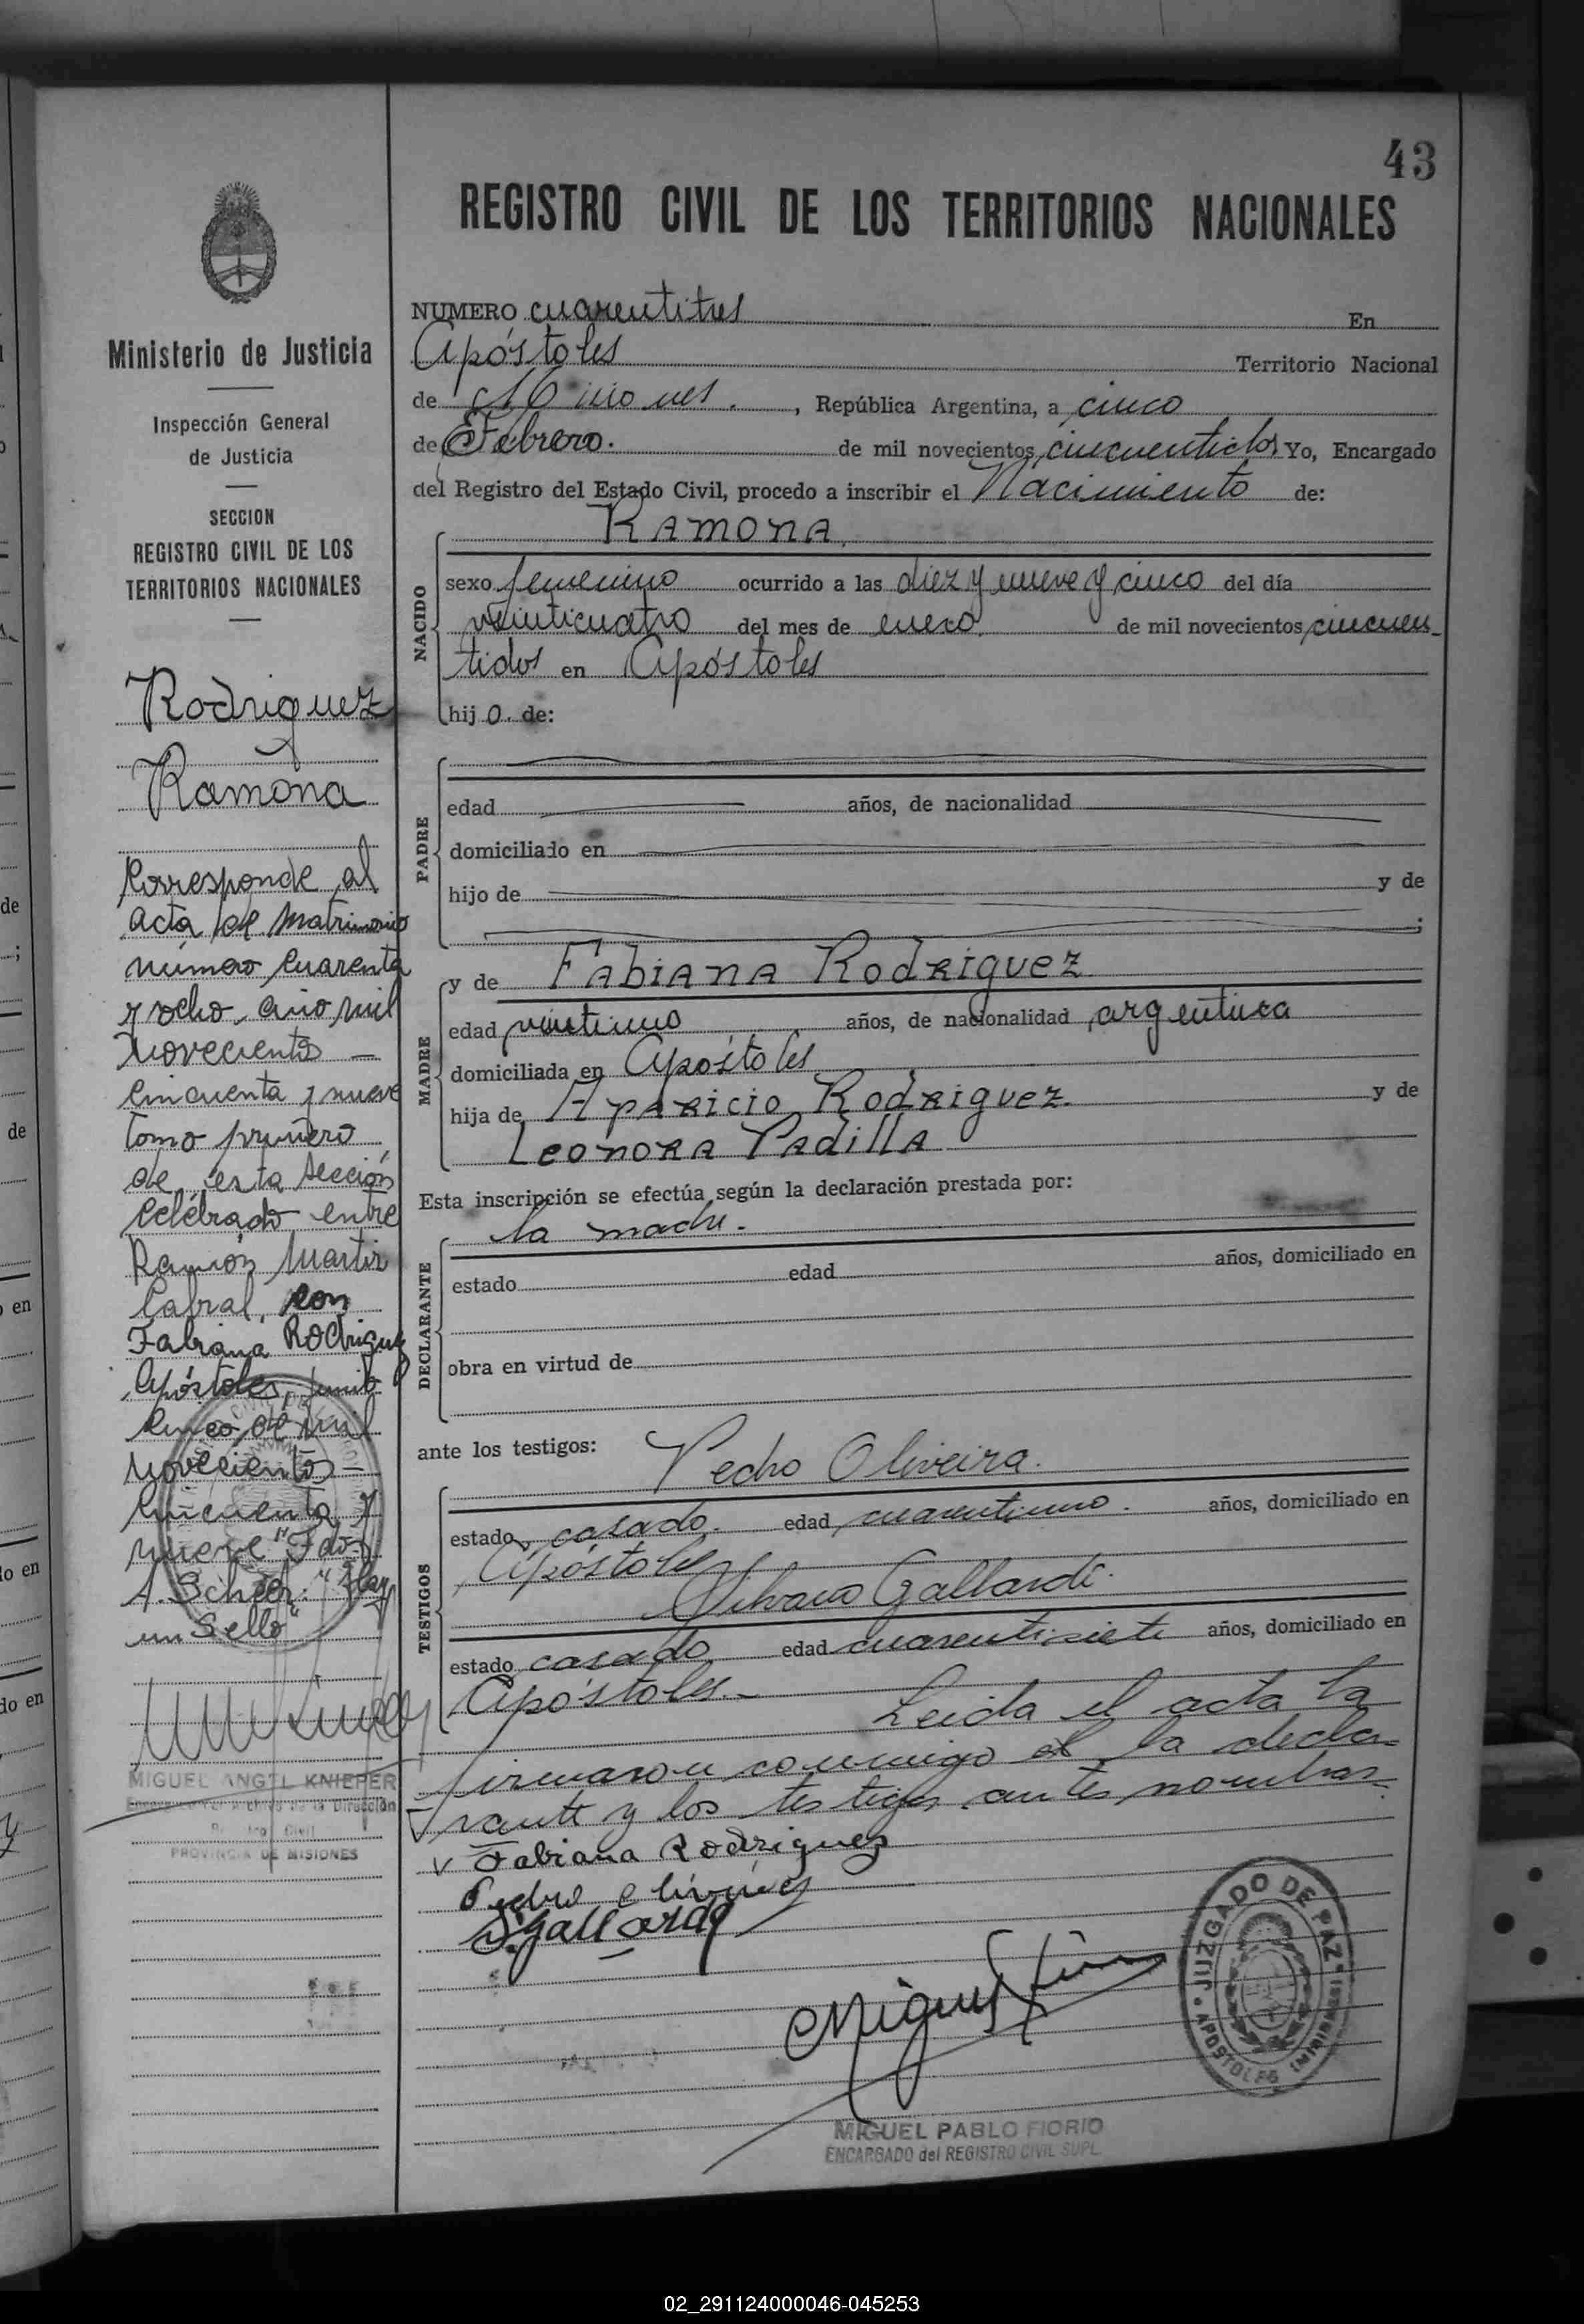 43
REGISTRO CIVIL DE LOS TERRITORIOS NACIONALES
Ministerio de Justicia
Inspección General
de Justicia
SECCION
REGISTRO CIVIL DE LOS
TERRITORIOS NACIONALES
Rodriguez
Ramona
Corresponde al
acta de matrimonio
número cuarenta
y ocho, año mil
novecientos —
cincuenta y nueve
tomo primero
de esta sección
celebrado entre
Ramón Martir
Cabral, con
Fabiana Rodriguez
Apóstoles, junio
cinco de mil
novecientos —
cincuenta y
nueve "Fdo.
A. Scheor: "Hay
un Sello"
MIGUEL ANGEL KNIEPER
Encargado del Archivo de la Dirección
Registro Civil
PROVINCIA DE MISIONES
NUMERO cuarentitres En
Apóstoles Territorio Nacional
de Misiones. , República Argentina, a cinco
de Febrero. de mil novecientos cincuentidos Yo, Encargado
del Registro del Estado Civil, procedo a inscribir el Nacimiento de:
NACIDO
RAMONA
sexo femenino ocurrido a las diez y nueve y cinco del día
veinticuatro del mes de enero de mil novecientos cincuen
tidos en Apóstoles
hij o. de:
PADRE
edad años, de nacionalidad
domiciliado en
hijo de y de
;
MADRE
y de Fabiana Rodriguez
edad veintiuno años, de nacionalidad argentina
domiciliada en Apóstoles
hija de Aparicio Rodriguez y de
Leonora Padilla
Esta inscripción se efectúa según la declaración prestada por:
DECLARANTE
la madre.
estado edad años, domiciliado en
obra en virtud de
ante los testigos: Pedro Oliveira.
TESTIGOS
estado casado. edad cuarentiuno. años, domiciliado en
Apóstoles
Silvano Gallardi.
estado casado edad cuarentisiete años, domiciliado en
Apóstoles.—
Leida el acta la
firmaron conmigo la decla-
rante y los testigos antes nombrar.
v Fabiana Rodriguez
Pedro
S. Gallardo
Miguel
JUZGADO DE PAZ
APOSTOLES (MISIONES)
MIGUEL PABLO FIORIO
ENCARGADO del REGISTRO CIVIL SUPL.
de
;
de
o en
lo en
do en
y
02_291124000046-045253